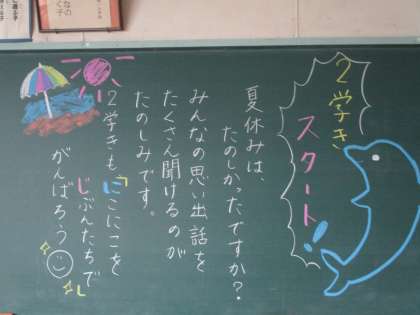 2学き
スタート!
夏休みは、
たのしかったですか?
みんなの思い出話を
たくさん聞けるのが
たのしみです。
2学きも「にこにこを
じぶんたちで」
がんばろう